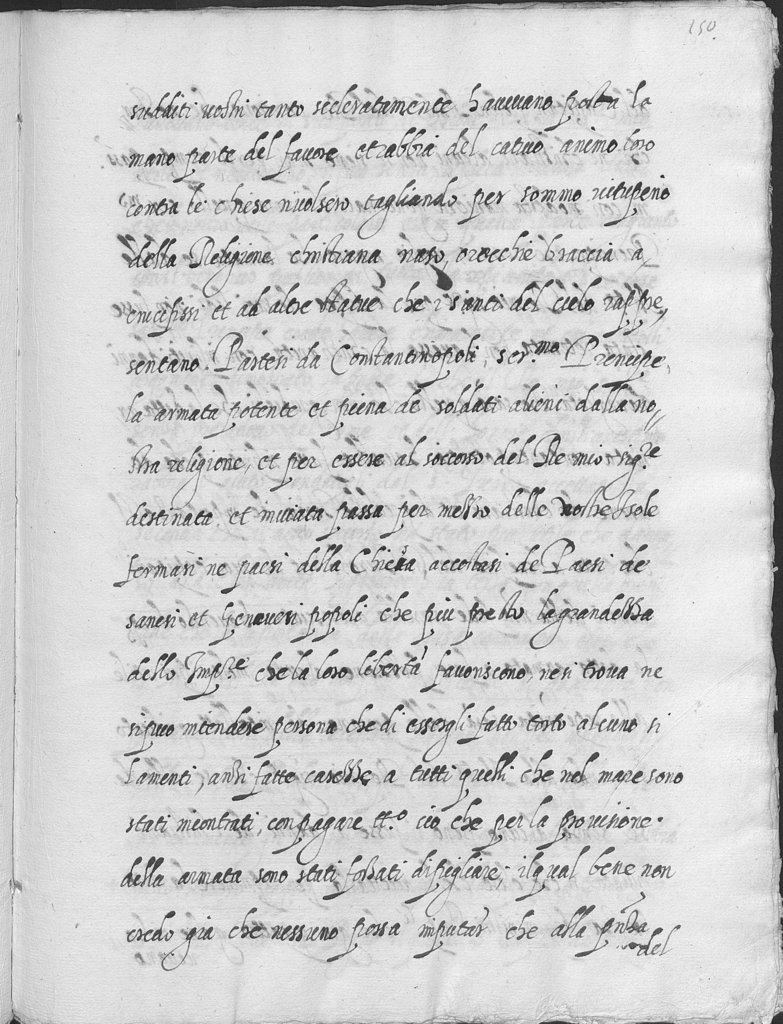 150
sudditi vostri tanto sceleratamente havevano posta la
mano parte del favore et rabbia del cativo animo loro
contra le chiese rivolsero tagliando per sommo vituperio
della Religione christiana naso, orecchie braccia a
crucifissi et ad altre statue che i santi del cielo rappre„
sentano. Partesi da Constantinopoli, ser.mo Prencipe,
la armata potente et piena de soldati alieni dalla no„
stra religione, et per essere al soccorso del Re mio sig.re
destinata et inviata passa per mezzo delle vostre Isole
fermasi ne paesi della Chiesa, accostasi de Paesi de
sanesi et Genovesi popoli che piu presto la grandezza
dello Imp.re che la loro libertà favoriscono, ne si trova ne
si puo intendere persona che di essergli fatto torto alcuno si
lamenti, anzi fatte carezze a tutti quelli che nel mare sono
stati incontrati, con pagare tt.o cio che per la provisione
della armata sono stati forzati di pigliare, il qual bene non
credo gia che nessuno possa imputar che alla pñza
del